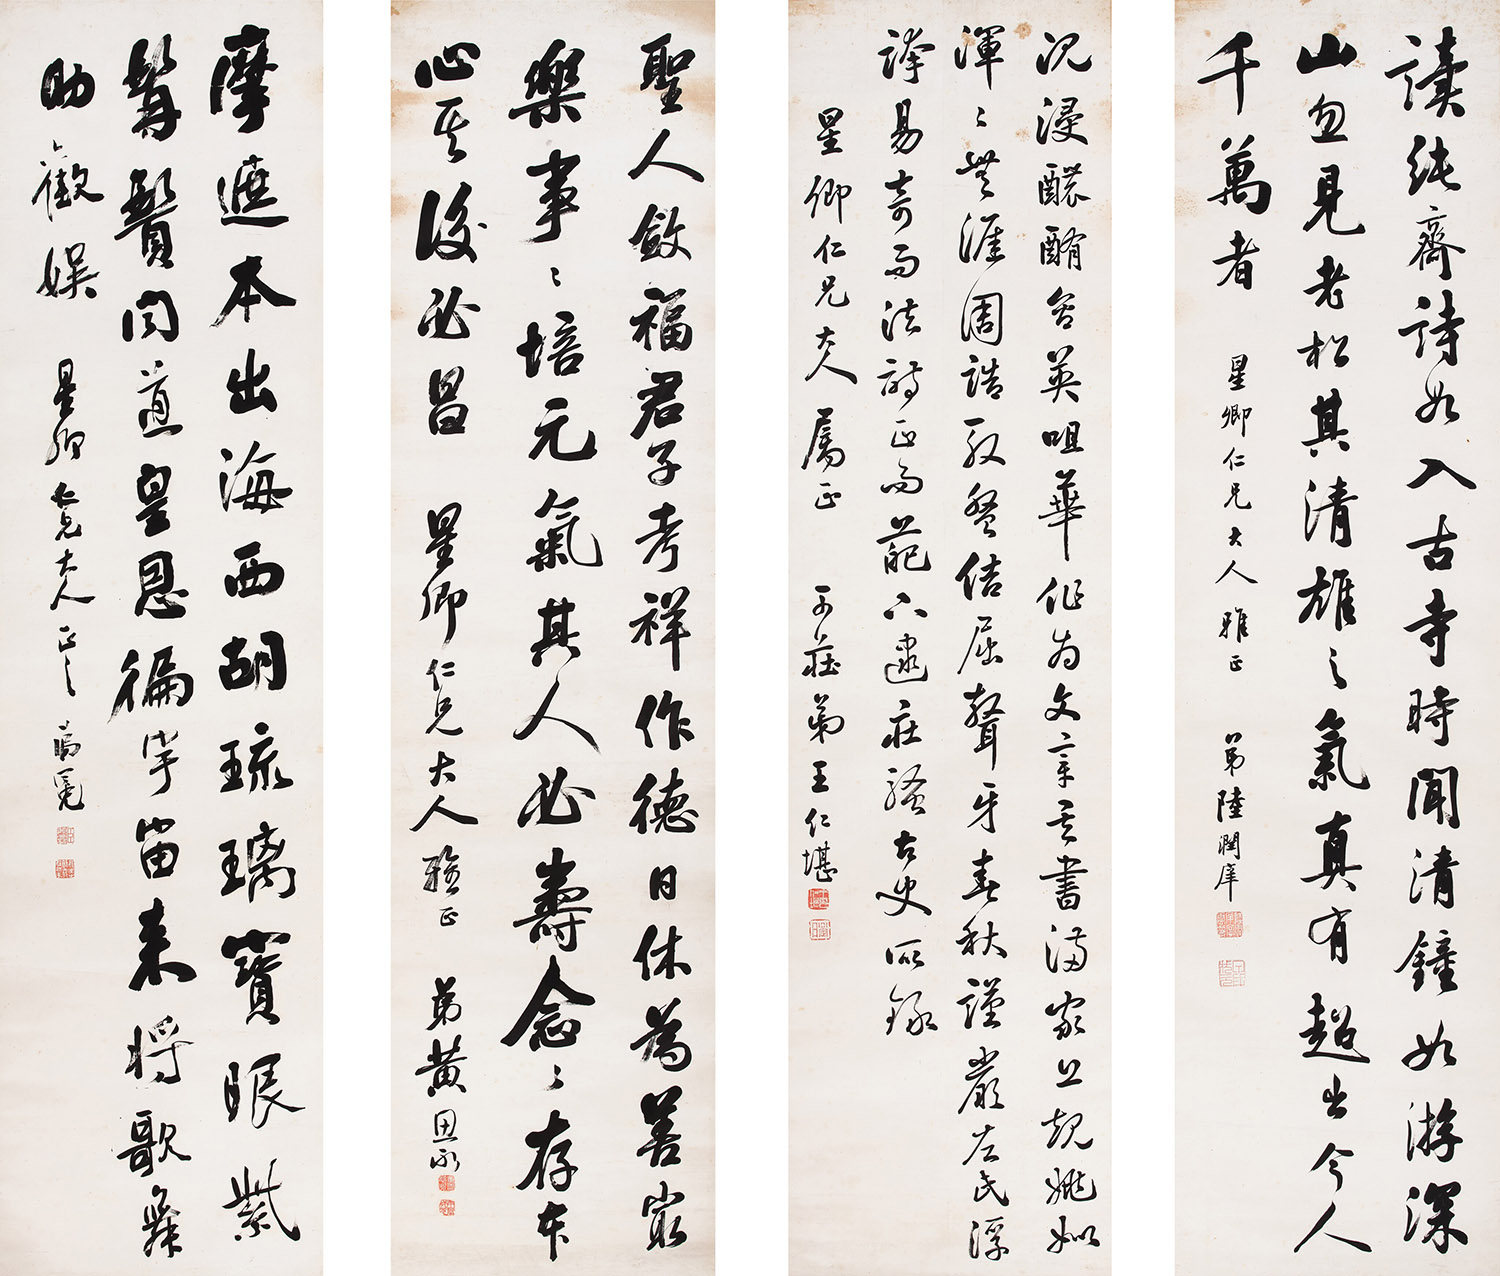 讀純齋詩如入古寺時聞清鐘如游深
山忽見老松其清雄之氣真有超出今人
千萬者
星卿仁兄大人雅正
弟陸潤庠
沉浸醲郁含英咀華作為文章其書滿家上規姚姒
渾〻無涯周誥殷盤佶屈聱牙春秋謹嚴左氏浮
誇易奇而法詩正而葩下逮莊騷古史所錄
星卿仁兄大人屬正
可莊弟王仁堪
聖人斂福君子考祥作德日休為善最
樂事〻培元氣其人必壽念〻存本
心其後必昌
星卿仁兄大人雅正
弟黃思永
摩遮本出海西胡琉璃寶眼紫
髯鬚聞道皇恩徧宇宙來將歌舞
助歡娛
星卿仁兄大人正之